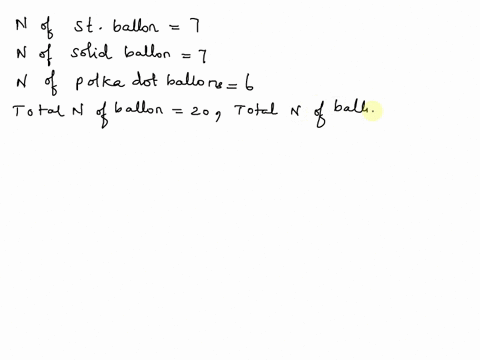 N of st. ballon = 7
N of solid ballon = 7
N of polka dot ballons = 6
Total N of ballon = 20, Total N of ball.